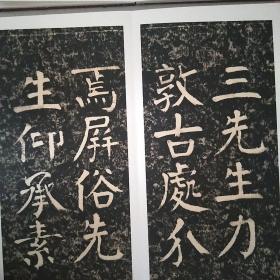 三先生力
敦古處介
焉屏俗先
生仰承素